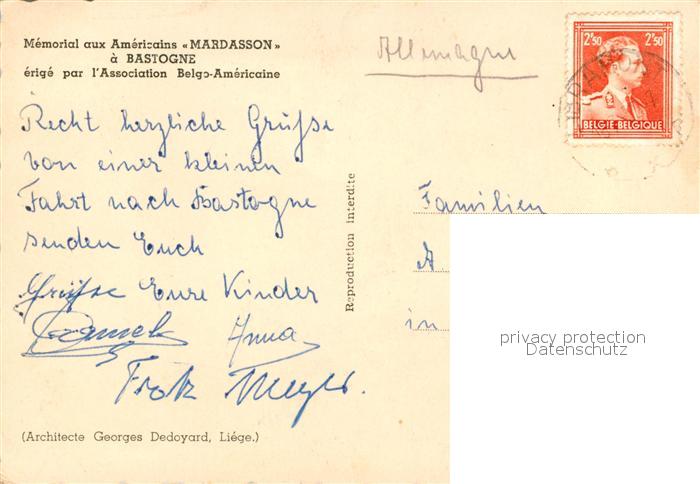 Mémorial aux Américains «MARDASSON»
à BASTOGNE
érigé par l'Association Belgo-Américaine
Allemagne
2F50 2F50
BELGIE-BELGIQUE
Recht herzliche Grüsse
von einer kleinen
Fahrt nach Bastogne
senden Euch
Grüsse Eure Kinder
Anna
Meyer.
(Architecte Georges Dedoyard, Liége.)
Reproduction interdite
Familien
A
in
privacy protection
Datenschutz